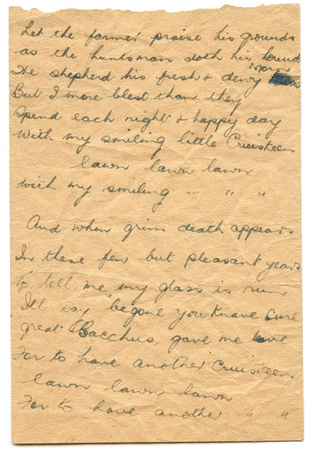 Let the farmer praise his grounds
as the huntsman doth his hounds
The shepherd his fresh & dewy morn
But I more blest than they
Spend each night & happy day
With my smiling little Cruiskeen
lawn lawn lawn
with my smiling " " "
And when grim death appears
In these few but pleasant years
To tell me my glass is run
I'll say "begone you Knave Sure
great Bacchus gave me leave
For to have another Cruiskeen
lawn lawn lawn
For to have another " "